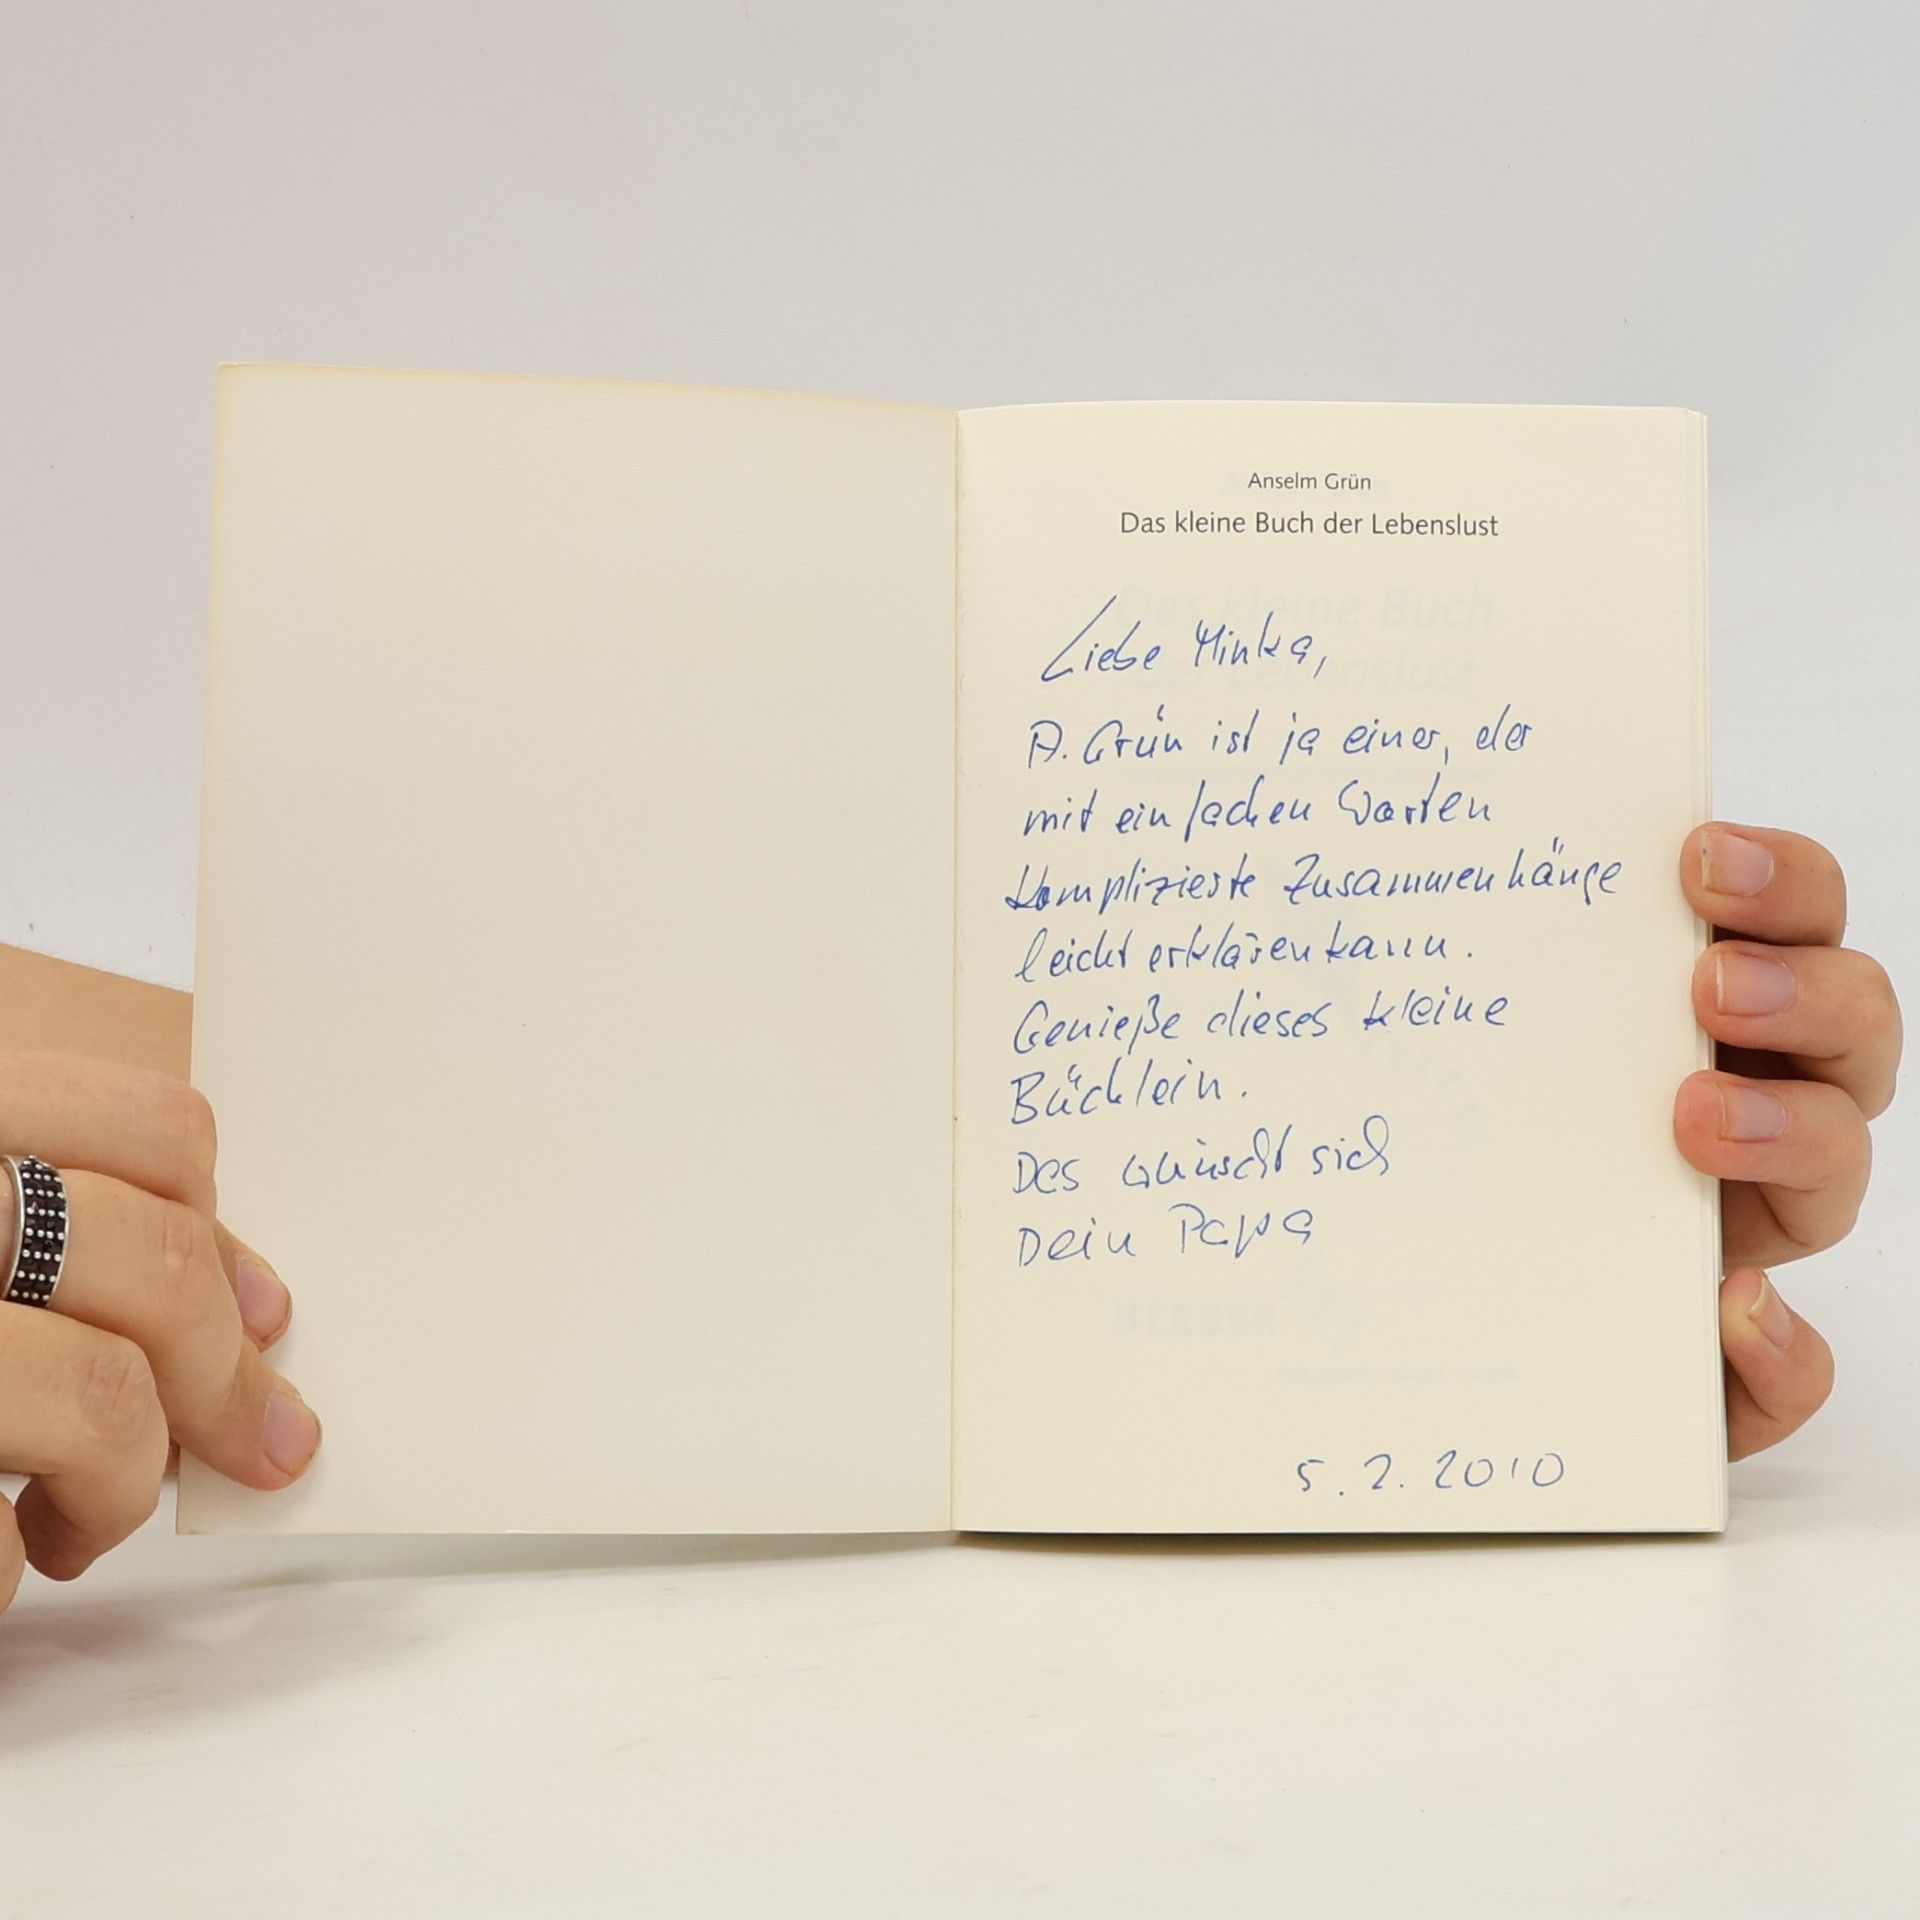 Anselm Grün
Das kleine Buch der Lebenslust
Liebe Minka,
A. Grün ist ja einer, der
mit einfachen Worten
komplizierte Zusammenhänge
leicht erklären kann.
Genieße dieses kleine
Büchlein.
Das wünscht sich
Dein Papa
HERDER
5. 2. 2010